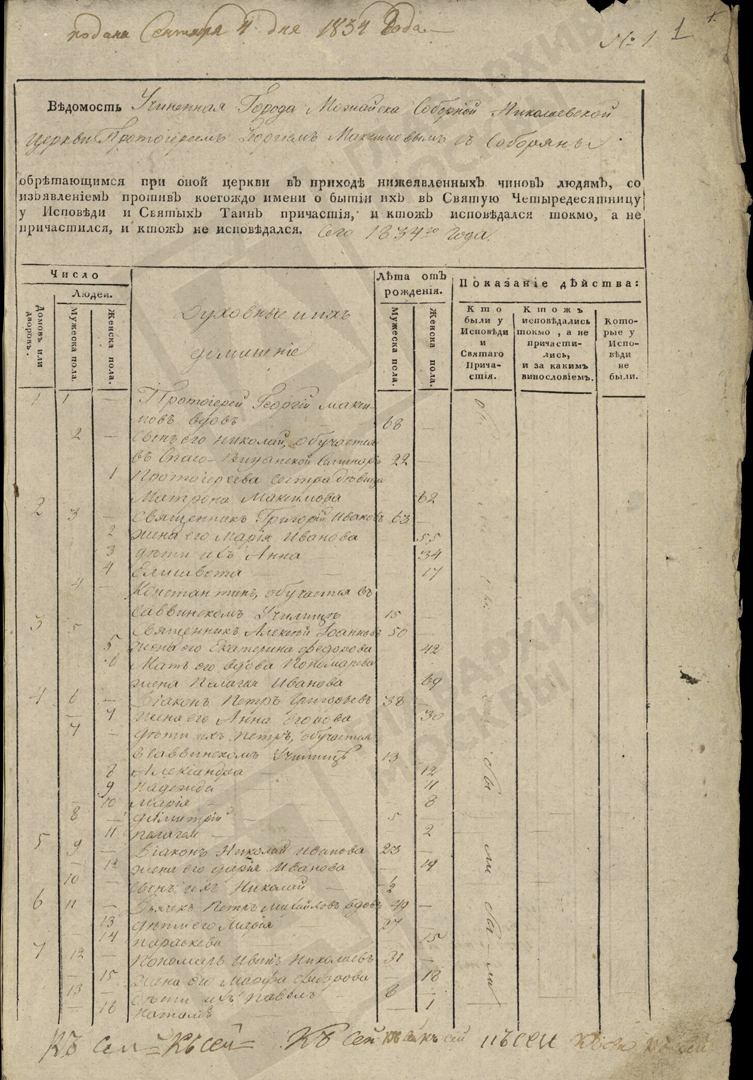 подана Сентября 4 дня 1834 Года.
№ 1. 1
Вѣдомость Учиненная Города Можайска Соборной Николаевской
Церкви Протоіереемъ Георгіемъ Максимовымъ съ Соборяны
обрѣтающимся при оной церкви въ приходѣ нижеявленныхъ чиновъ людямъ, со
изъявленіемъ противъ коегождо имени о бытіи ихъ въ Святую Четыредесятницу
у Исповѣди и Святыхъ Таинъ причастія, и ктожъ исповѣдался токмо, а не
причастился, и ктожъ не исповѣдался. Сего 1834го Года
Число
Людей.
Домовъ или дворовъ.
Мужеска пола.
Женска пола.
Духовные и ихъ
домашніе
Лѣта отъ рожденія.
Мужеска пола.
Женска пола.
Показаніе дѣйства:
Кто были у Исповѣди и Святаго Причастія.
Ктожъ исповѣдались токмо, а не причастились, и за какимъ винословіемъ.
Которые у Исповѣди не были.
1 1 — Протоіерей Георгій Максимовъ вдовъ 68
2 — Сынъ его Николай, обучается
въ Спасо-Виѳанской Семинаріи 22
1 Протоіереева сестра
Матрона Максимова 62
2 3 — Священникъ Григорій Ивановъ 63
2 жена его Марія Иванова 55
3 дѣти ихъ Анна 34
4 Елисавета 17
4 Константинъ, обучается въ
Саввинскомъ Училищѣ 15
3 5 Священникъ Алексѣй Іоанновъ 50
5 жена его Екатерина Ѳедорова 42
6 Мать его вдова Пономарева
жена Пелагія Иванова 69
4 6 — Діаконъ Петръ Григорьевъ 38
7 Жена его Анна Егорова 30
7 — дѣти ихъ Петръ, обучается
въ Саввинскомъ Училищѣ 13
8 Александра 12
9 Надежда 11
10 Марія 8
8 — Димитрій 5
11 Пелагея 2
5 9 — Діаконъ Николай Ивановъ 23
12 жена его Марія Иванова 19
10 — сынъ ихъ Николай ½
6 11 — Дьячекъ Петръ Михайловъ вдовъ 49
13 дѣти его Марія 27
14 Параскева 15
7 12 — Пономарь Николаевъ 31
15 жена его Марѳа Ѳедорова 18
13 — дѣти ихъ Павелъ 6
16 Наталья 1
Къ сей Къ сей Къ сей